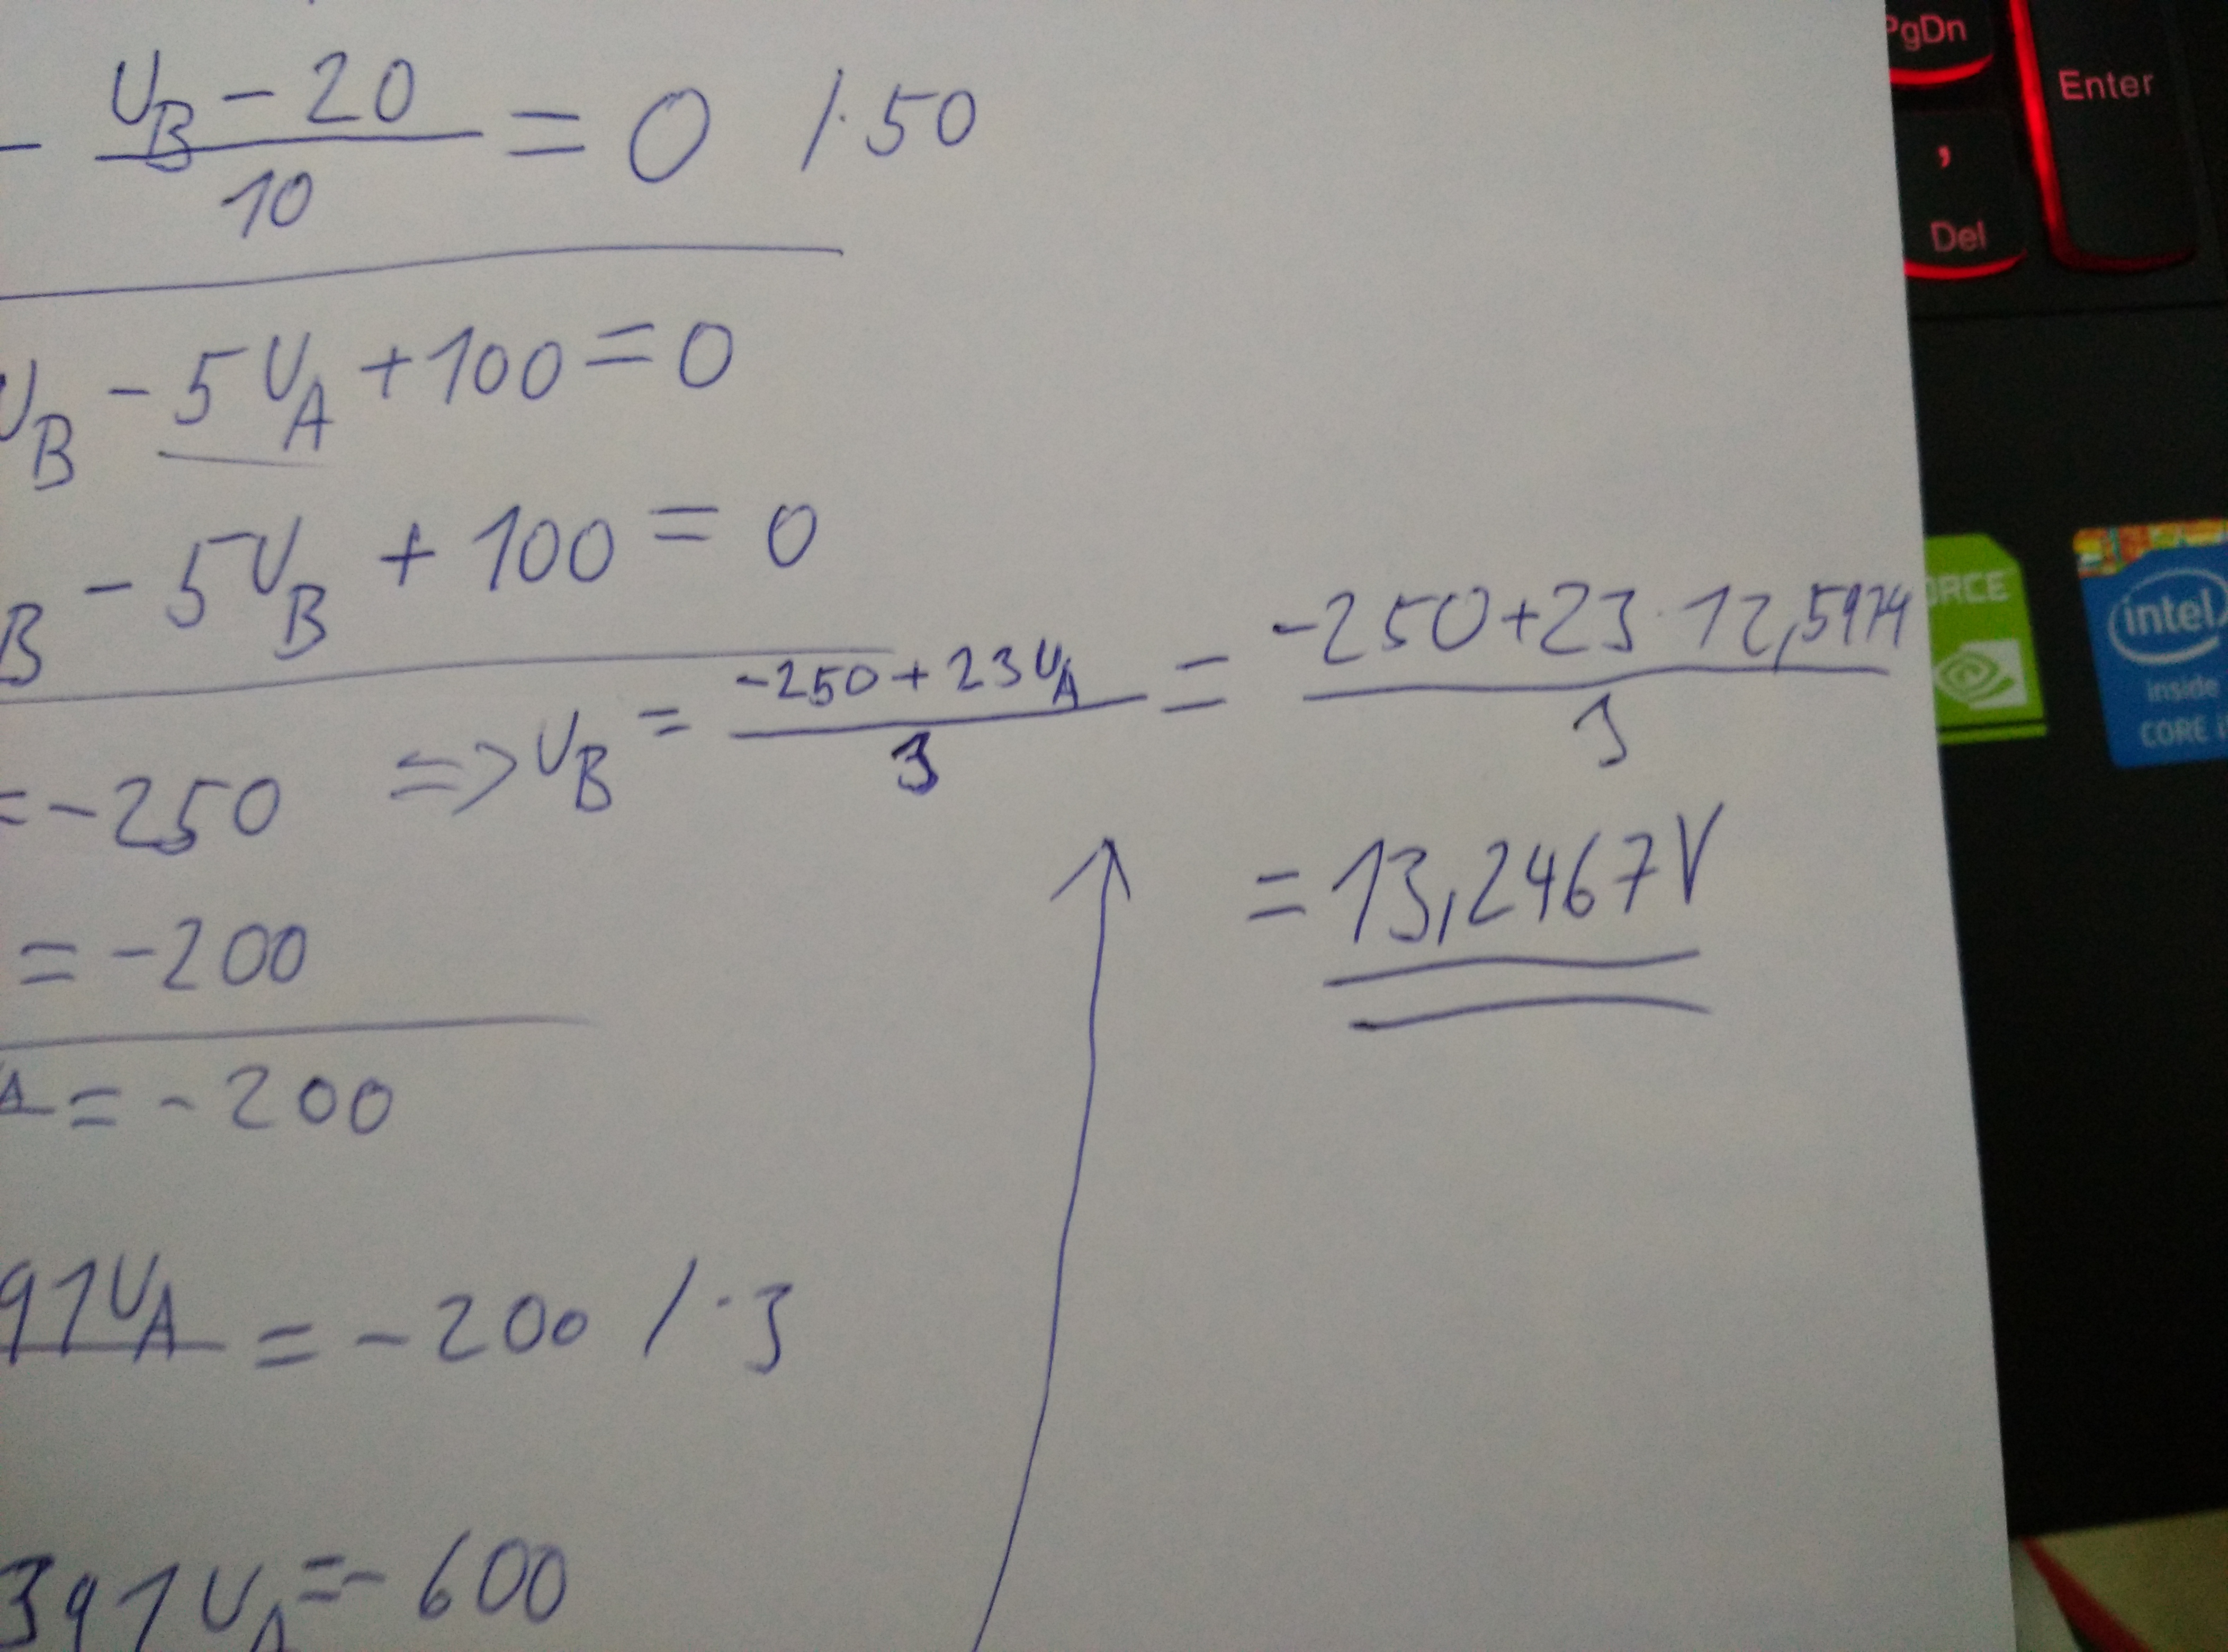 - (U_B - 20)/10 = 0 /·50
U_B - 5U_A + 100 = 0
B - 5U_B + 100 = 0
= -250 => U_B = (-250 + 23U_A)/3 = (-250 + 23·12,5974)/3
= 13,2467V
= -200
A = -200
91U_A = -200 /·3
391U_A = -600
PgDn
Enter
,
Del
ORCE
intel
inside
CORE i